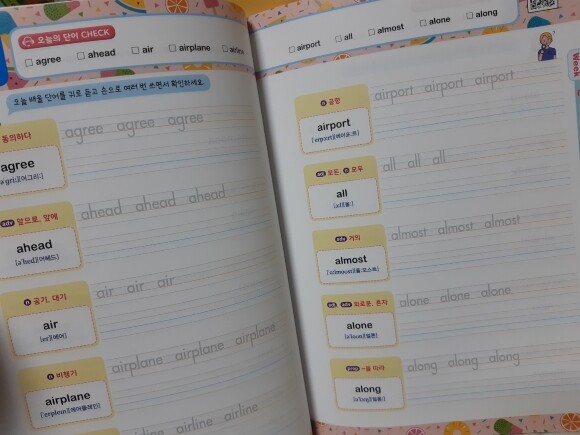 오늘의 단어 CHECK
agree ahead air airplane airline
오늘 배울 단어를 귀로 듣고 손으로 여러 번 쓰면서 확인하세요.
동의하다
agree
agree agree agree
adv 앞으로, 앞에
ahead
[əˈhed][어헤드]
ahead ahead ahead
n 공기, 대기
air
[er][에어]
air air air
n 비행기
airplane
[ˈerpleɪn][에어플레인]
airplane airplane airplane
airline airline airline
airport all almost alone along
n 공항
airport
airport airport airport
모든, 모두
all
all all all
adv 거의
almost
almost almost almost
adj adv 외로운, 혼자
alone
[əˈloʊn][얼론]
alone alone alone
prep ~을 따라
along
along along along
Week